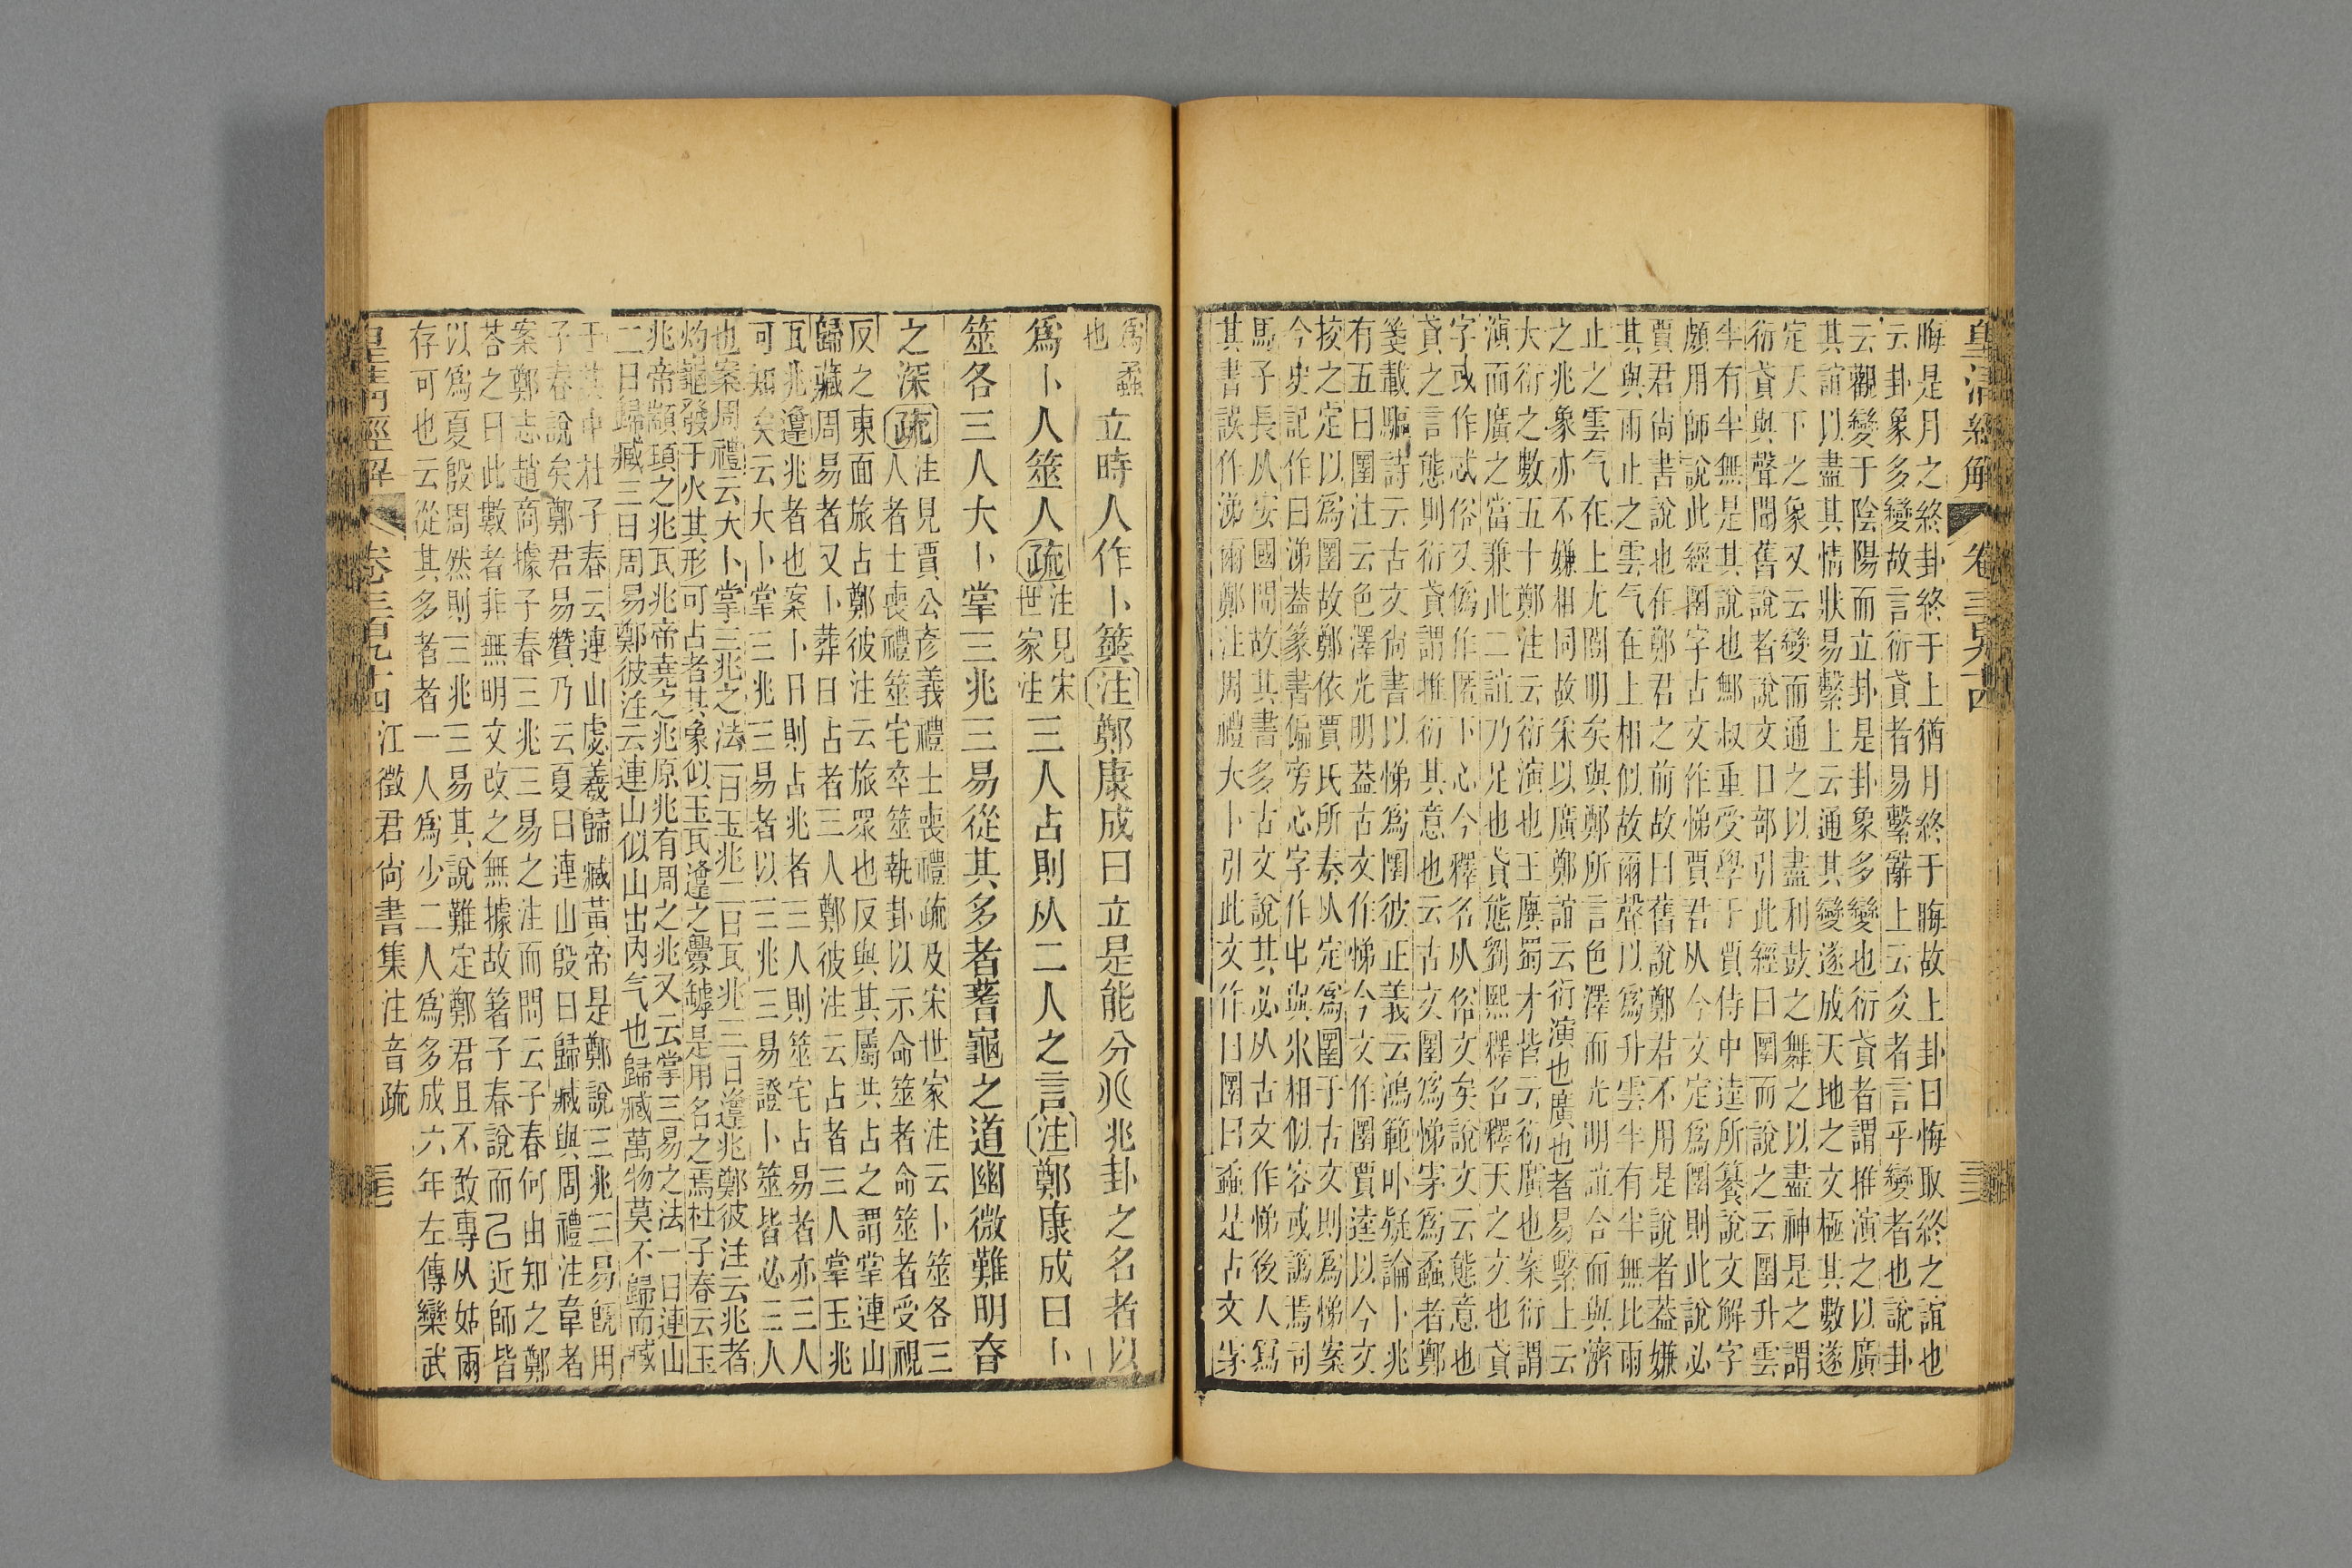 皇清經解 卷三百九十四
晦是月之終卦終于上猶月終于晦故上卦曰悔取終之誼也
云卦象多變故言衍貣者易繫辭上云爻者言乎變者也說卦
云觀變于陰陽而立卦是卦象多變也衍貣者謂推演之以廣
其誼以盡其情狀易繫上云通其變遂成天地之文極其數遂
定天下之象又云變而通之以盡利鼓之舞之以盡神是之謂
衍貣與聲聞舊說者說文口部引此經曰圛而說之云圛升雲
半有半無是其說也鄦叔重受學于賈侍中逵所篹說文解字
頗用師說此經圛字古文作悌賈君从今文定為圛則此說必
賈君尙書說也在鄭君之前故曰舊說鄭君不用是說者葢嫌
其與雨止之雲气在上相似故爾聲以為升雲半有半無比雨
止之雲气在上尤闓明矣與鄭所言色澤而光明誼合而與濟
之兆象亦不嫌相同故采以廣鄭誼云衍演也廣也者易繫上云
大衍之數五十鄭注云衍演也王廙蜀才皆云衍廣也案衍謂
演而廣之當兼此二誼乃足也貣態劉熙釋名釋天之文也貣
字或作忒俗又偽作慝下心今釋名从俗文矣說文云態意也
貣之言態則衍貣謂推衍其意也云古文圛為悌雺為蟊者鄭
箋載驅詩云古文尙書以悌為圛彼正義云鴻範卟疑論卜兆
有五曰圛注云色澤光明葢古文作悌今文作圛賈逵以今文
挍之定以為圛故鄭依賈氏所奏从定為圛于古文則為悌案
今史記作曰涕葢篆書偏旁心字作㣺與氺相似容或譌焉司
馬子長从安國問故其書多古文說其必从古文作悌後人寫
其書誤作涕爾鄭注周禮大卜引此文作曰圛曰蟊是古文雺
為蟊
也
立時人作卜筮注鄭康成曰立是能分八兆卦之名者以
為卜人筮人疏注見宋
世家注
三人占則从二人之言注鄭康成曰卜
筮各三人大卜掌三兆三易從其多者蓍龜之道幽微難明眘
之深疏注見賈公彥義禮士喪禮疏及宋世家注云卜筮各三
人者士喪禮筮宅卒筮執卦以示命筮者命筮者受視
反之東面旅占鄭彼注云旅眾也反與其屬共占之謂掌連山
歸藏周易者又卜葬日占者三人鄭彼注云占者三人掌玉兆
瓦兆邍兆者也案卜日則占兆者三人則筮宅占易者亦三人
可知矣云大卜掌三兆三易者以三兆三易證卜筮皆必三人
也案周禮云大卜掌三兆之法一曰玉兆二曰瓦兆三曰邍兆鄭彼注云兆者
灼龜發于火其形可占者其象似玉瓦邍之舋罅是用名之焉杜子春云玉
兆帝顓頊之兆瓦兆帝堯之兆原兆有周之兆又云掌三易之法一曰連山
二曰歸臧三曰周易鄭彼注云連山似山出內气也歸臧萬物莫不歸而臧
于其中杜子春云連山虙羲歸臧黃帝是鄭說三兆三易旣用
子春說矣鄭君易贊乃云夏曰連山殷曰歸臧與周禮注韋者
案鄭志趙商據子春三兆三易之注而問云子春何由知之鄭
荅之曰此數者非無明文改之無據故箸子春說而已近師皆
以為夏殷周然則三兆三易其說難定鄭君且不敢專从姑兩
存可也云從其多者者一人為少二人為多成六年左傳欒武
皇清經解 卷三百九十四 江徵君尙書集注音疏